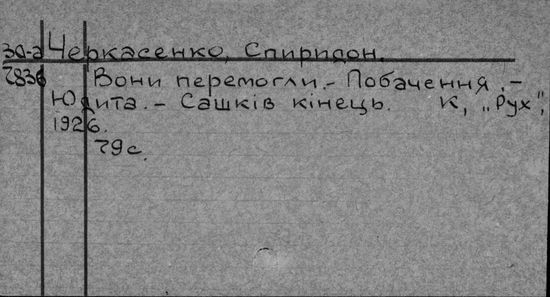 30-а Черкасенко, Спиридон.
7836 Вони перемогли.- Побачення.-
Юдита.- Сашків кінець. К, „Рух",
1926.
79с.